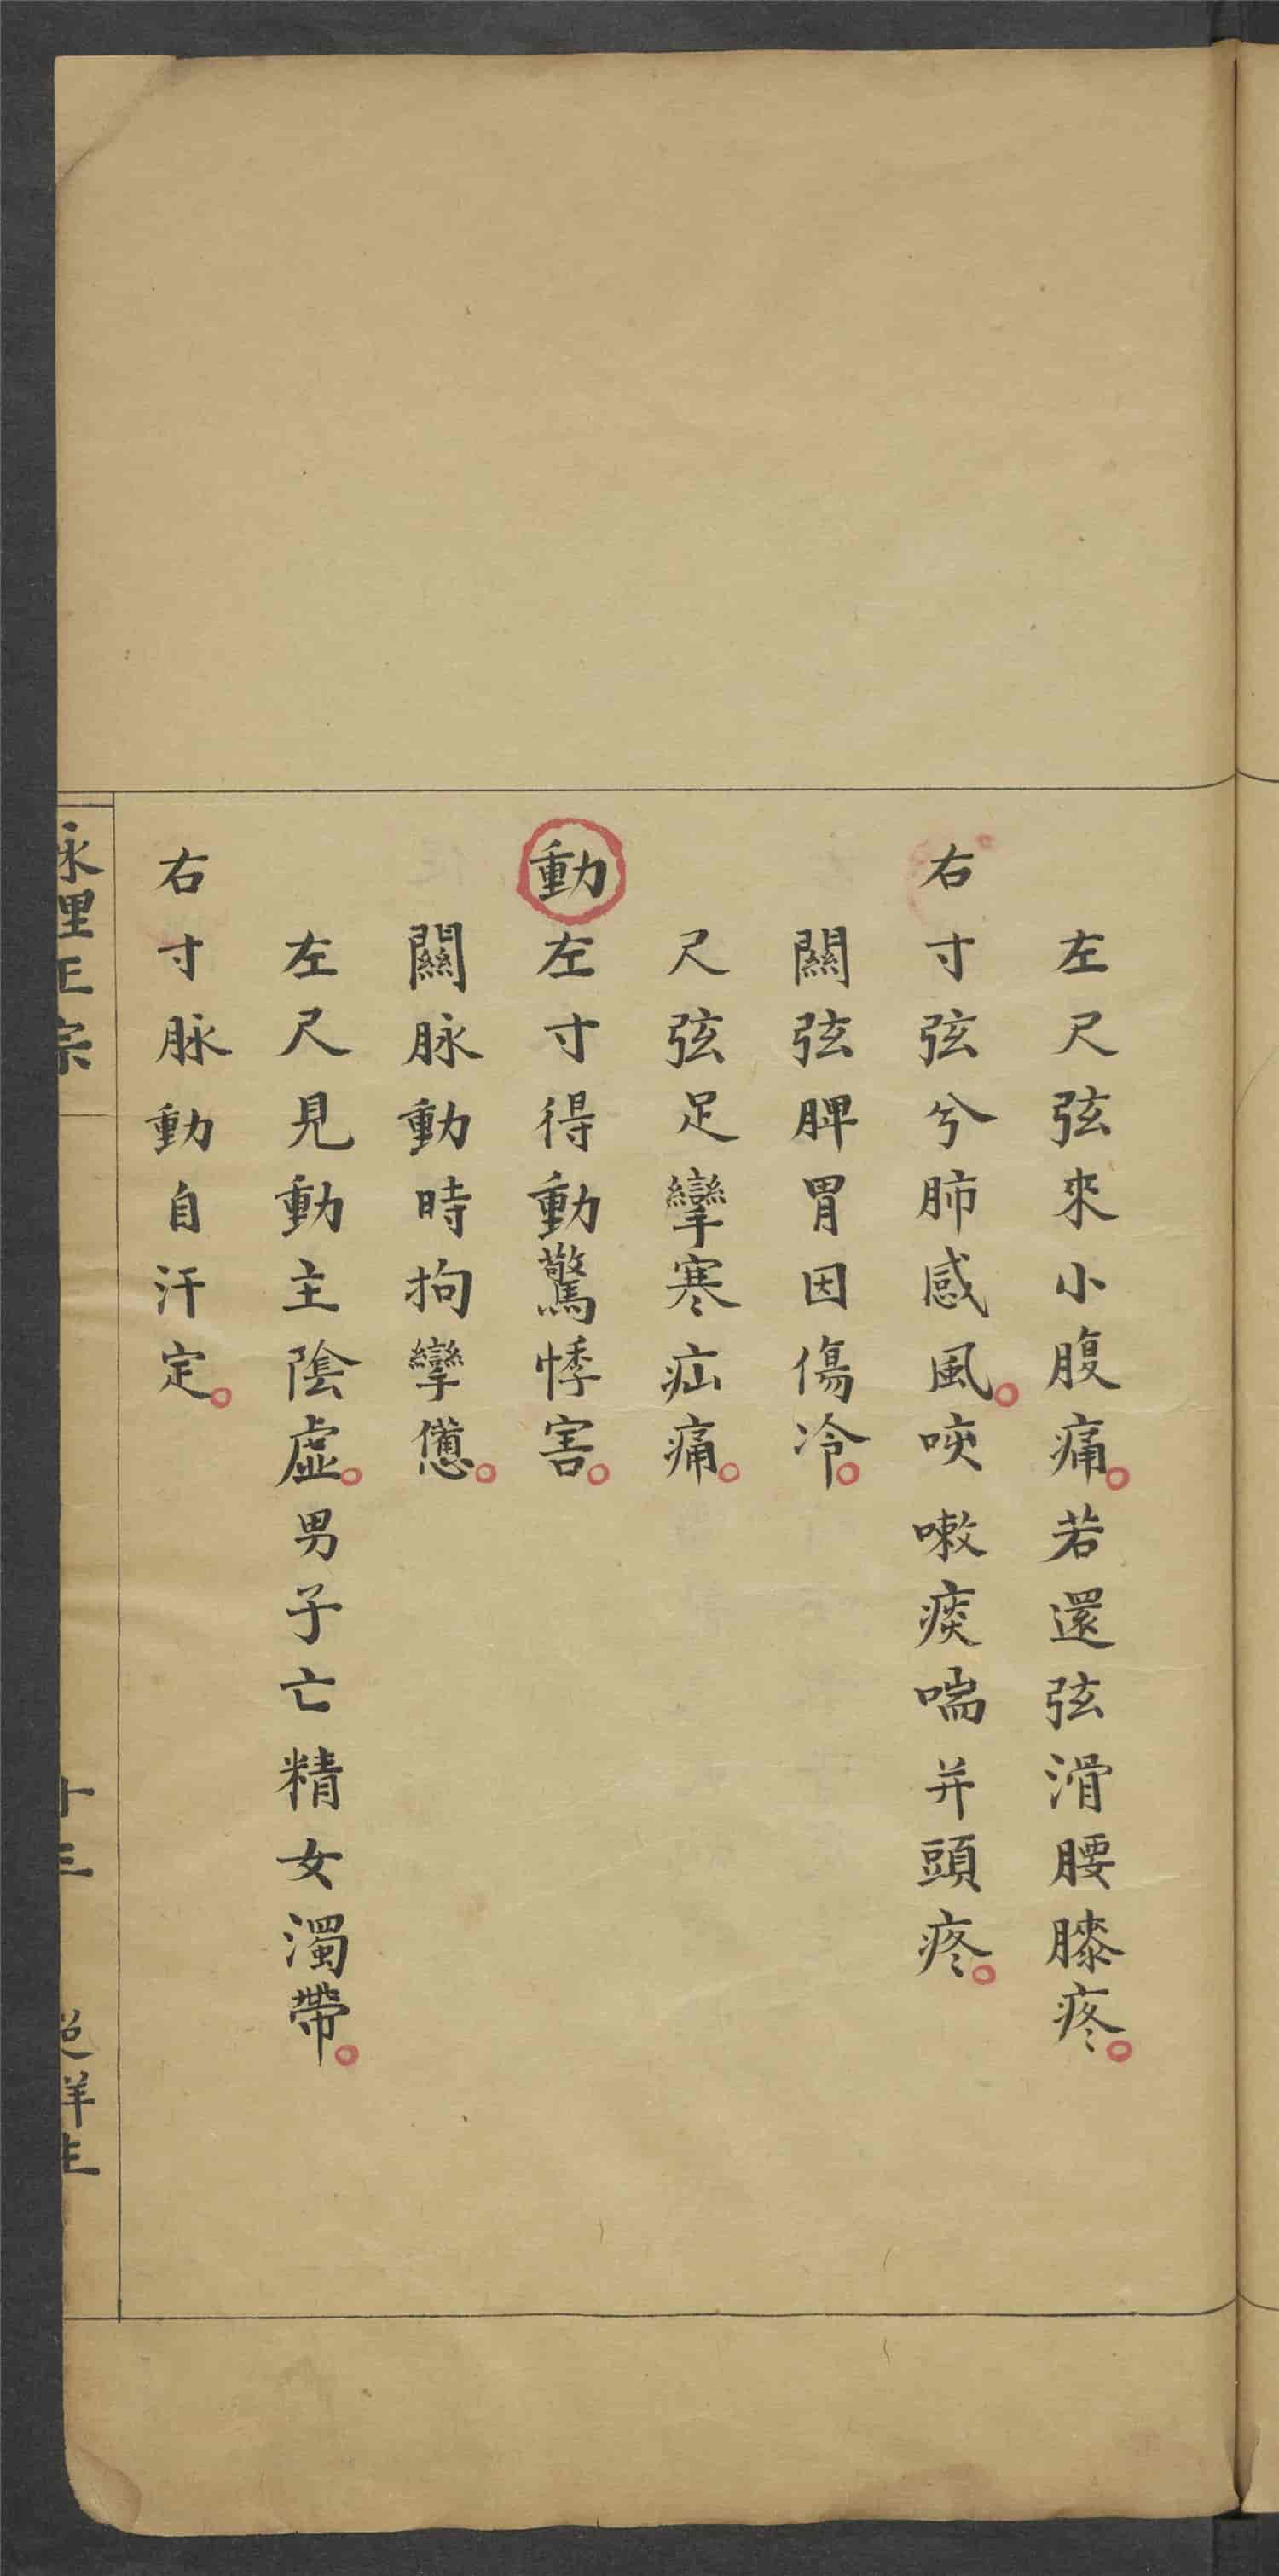 左尺弦來小腹痛。若還弦滑腰膝疼。
右寸弦兮肺感風。咳嗽痰喘并頭疼。
關弦脾胃因傷冷。
尺弦足攣寒疝痛。
動左寸得動驚悸害。
關脉動時拘攣憊。
左尺見動主陰虛。男子亡精女濁帶。
右寸脉動自汗定。
脉理正宗
十三